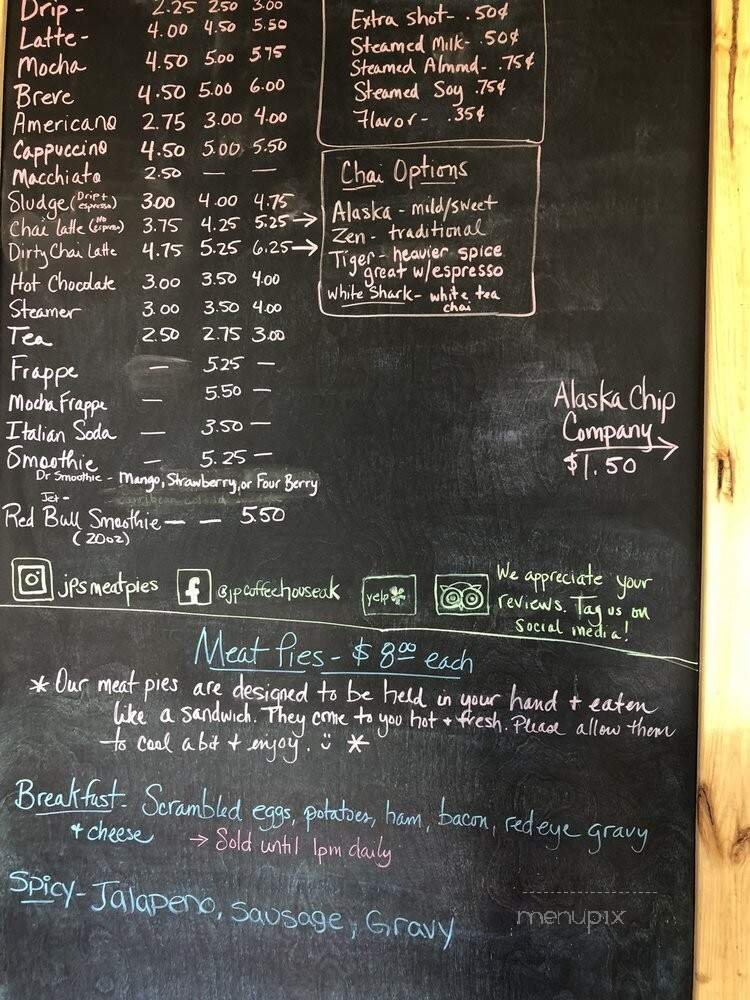 Drip - 2.25 2.50 3.00
Latte - 4.00 4.50 5.50
Mocha 4.50 5.00 5.75
Breve 4.50 5.00 6.00
Americano 2.75 3.00 4.00
Cappuccino 4.50 5.00 5.50
Macchiato 2.50 — —
Sludge (Drip + espresso) 3.00 4.00 4.75
Chai latte (no espresso) 3.75 4.25 5.25 →
Dirty Chai Latte 4.75 5.25 6.25 →
Hot Chocolate 3.00 3.50 4.00
Steamer 3.00 3.50 4.00
Tea 2.50 2.75 3.00
Frappe — 5.25 —
Mocha Frappe — 5.50 —
Italian Soda — 3.50 —
Smoothie — 5.25 —
Dr Smoothie - Mango, Strawberry, or Four Berry
Jet -
Red Bull Smoothie — — 5.50
(20oz)
Extra shot - .50¢
Steamed Milk - .50¢
Steamed Almond - .75¢
Steamed Soy .75¢
Flavor - .35¢
Chai Options
Alaska - mild/sweet
Zen - traditional
Tiger - heavier spice
great w/espresso
White Shark - white tea
chai
Alaska Chip
Company →
$1.50
jpsmeatpies @jpcoffeehouseak yelp
We appreciate your
reviews. Tag us on
social media!
Meat Pies - $8.00 each
* Our meat pies are designed to be held in your hand + eaten
like a sandwich. They come to you hot + fresh. Please allow them
to cool a bit + enjoy. *
Breakfast - Scrambled eggs, potatoes, ham, bacon, redeye gravy
+ cheese → Sold until 1pm daily
Spicy - Jalapeno, Sausage, Gravy
menupix